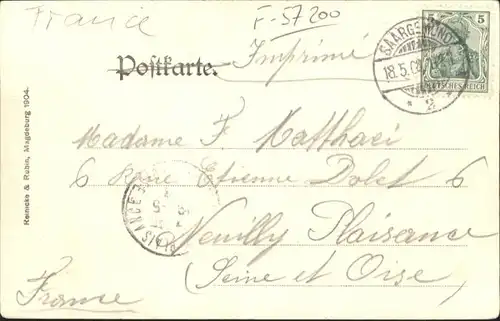 France
F-57200
Imprimé
Postkarte.
SAARGEMÜND
18.5.0
* 2
5
DEUTSCHES REICH
Reinicke & Rubin, Magdeburg 1904.
Madame F. Matthaei
6 Rue Etienne Dolet 6
PLAISANCE
Neuilly Plaisance
(Seine et Oise)
France